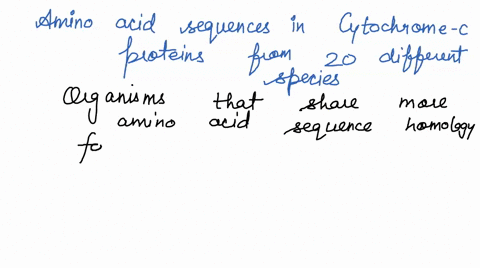 Amino acid sequences in Cytochrome-c
proteins from 20 different
species
Organisms that share more
amino acid sequence homology
fo